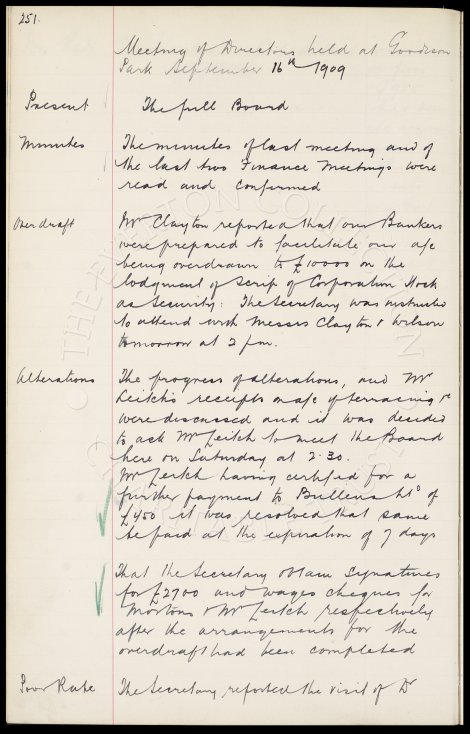 251.
Meeting of Directors held at Goodison
Park September 16th 1909
Present The full Board
Minutes The minutes of last meeting and of
the last two Finance Meetings were
read and confirmed
Overdraft Mr Clayton reported that our Bankers
were prepared to facilitate our a/c
being overdrawn to £10000 on the
lodgment of Scrip of Corporation Stock
as Security: The Secretary was instructed
to attend with Messrs Clayton & Wilson
tomorrow at 2 pm.
Alterations The progress of alterations, and Mr
Leitch's receipts on a/c of terracing &c
were discussed and it was decided
to ask Mr Leitch to meet the Board
here on Saturday at 2.30.
Mr Leitch having certified for a
further payment to Bullens Ltd of
£450 it was resolved that same
be paid at the expiration of 7 days
That the Secretary obtain Signatures
for £2700 and wages cheques for
Mortons & Mr Leitch respectively
after the arrangements for the
overdraft had been completed
Poor Rate The Secretary reported the visit of Dr